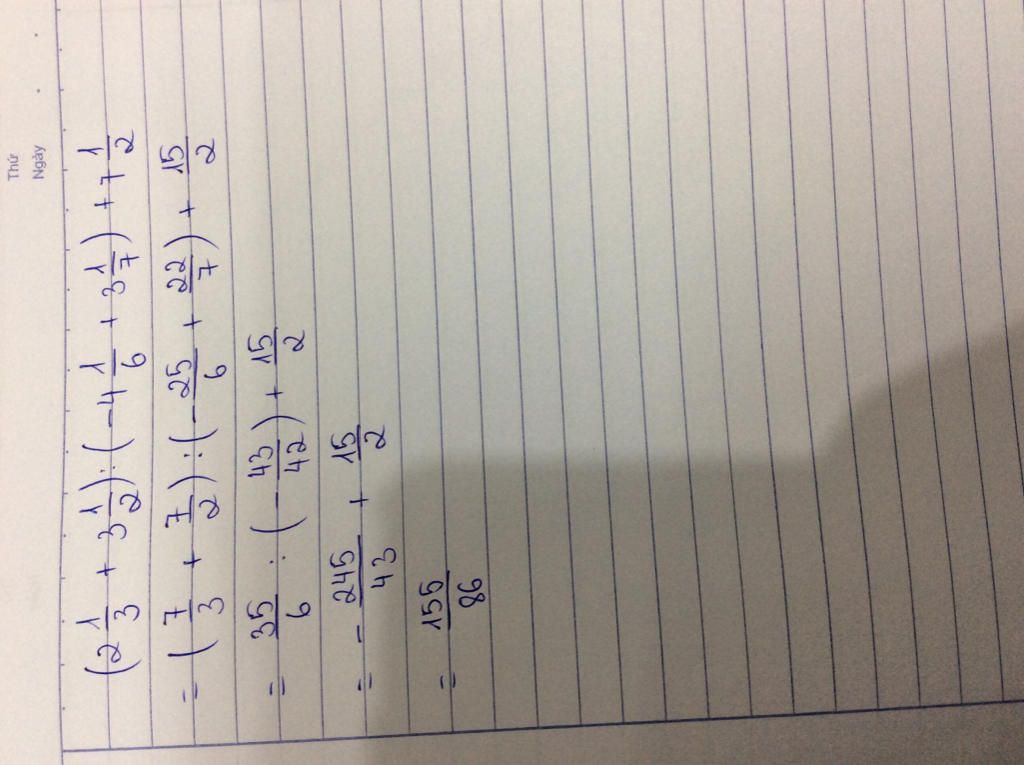 Thứ
Ngày
(2 1/3 + 3 1/2) : (-4 1/6 + 3 1/7) + 7 1/2
= (7/3 + 7/2) : (-25/6 + 22/7) + 15/2
= 35/6 : (-43/42) + 15/2
= -245/43 + 15/2
= 155/86